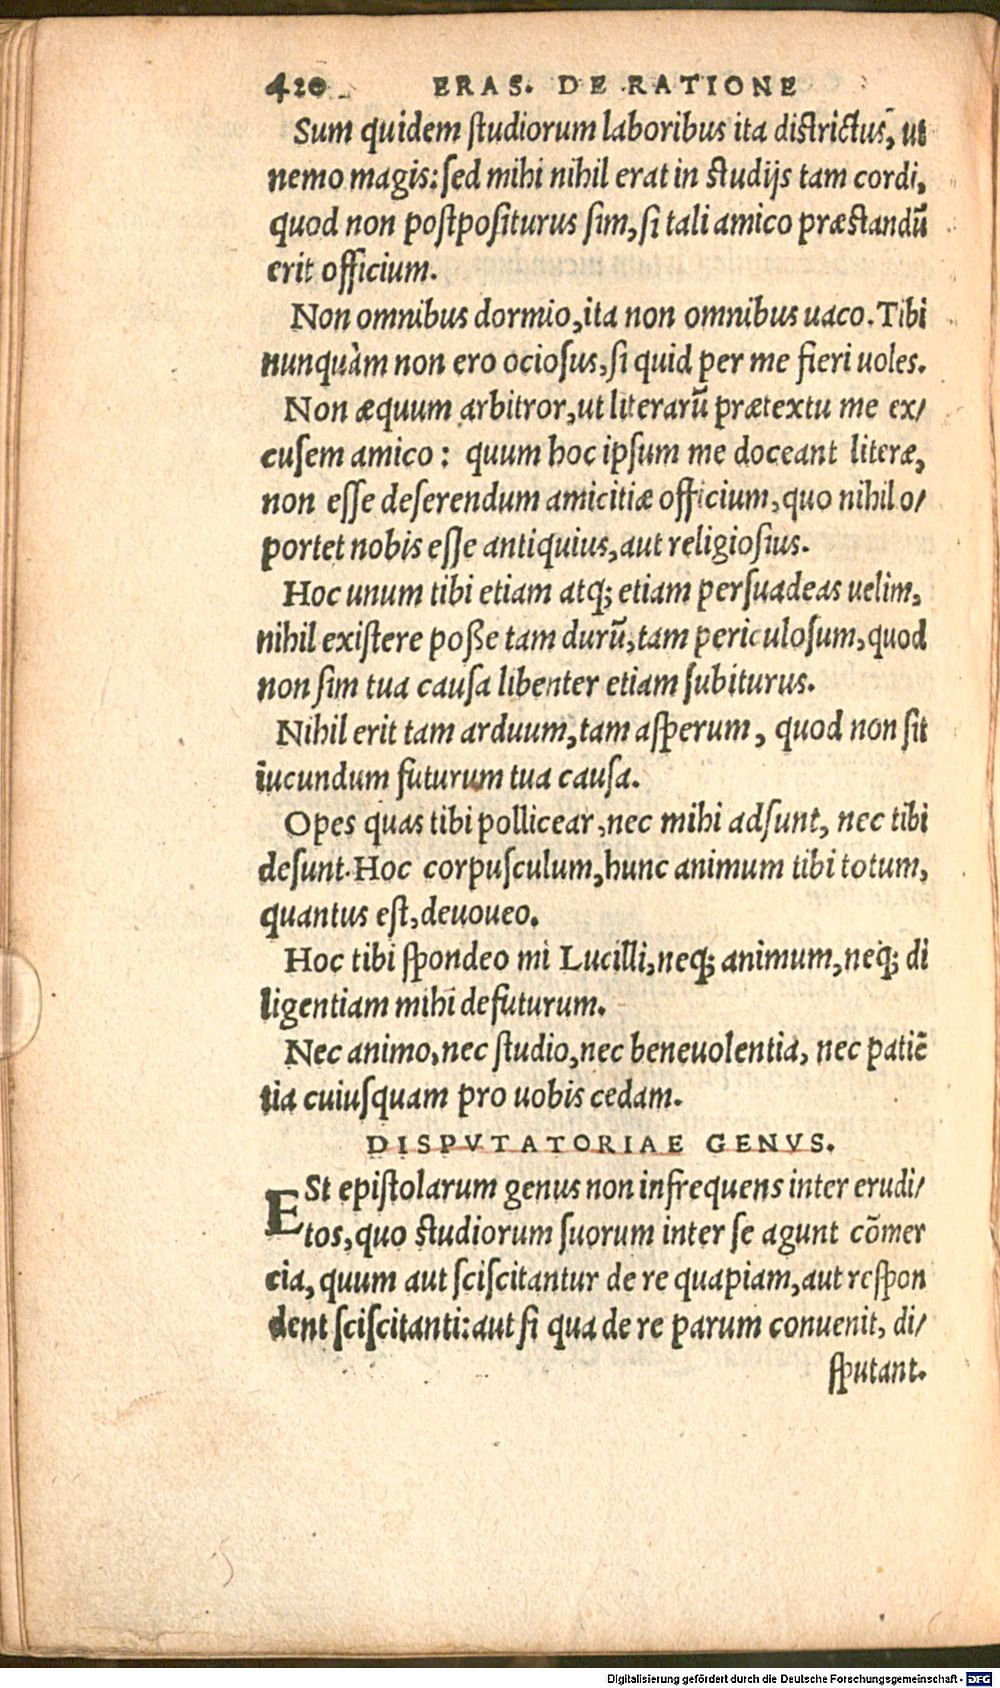 420 ERAS. DE RATIONE
Sum quidem studiorum laboribus ita districtus, ut
nemo magis: sed mihi nihil erat in studijs tam cordi,
quod non postpositurus sim, si tali amico præstandū
erit officium.
Non omnibus dormio, ita non omnibus uaco. Tibi
nunquàm non ero ociosus, si quid per me fieri uoles.
Non æquum arbitror, ut literarū prætextu me ex/
cusem amico: quum hoc ipsum me doceant literæ,
non esse deserendum amicitiæ officium, quo nihil o/
portet nobis esse antiquius, aut religiosius.
Hoc unum tibi etiam atq; etiam persuadeas uelim,
nihil existere posse tam durū, tam periculosum, quod
non sim tua causa libenter etiam subiturus.
Nihil erit tam arduum, tam asperum, quod non sit
iucundum futurum tua causa.
Opes quas tibi pollicear, nec mihi adsunt, nec tibi
desunt. Hoc corpusculum, hunc animum tibi totum,
quantus est, deuoueo.
Hoc tibi spondeo mi Lucilli, neq; animum, neq; di
ligentiam mihi defuturum.
Nec animo, nec studio, nec beneuolentia, nec patiē
tia cuiusquam pro uobis cedam.
DISPVTATORIAE GENVS.
ESt epistolarum genus non infrequens inter erudi/
tos, quo studiorum suorum inter se agunt cōmer
cia, quum aut sciscitantur de re quapiam, aut respon
dent sciscitanti: aut si qua de re parum conuenit, di/
sputant.
Digitalisierung gefördert durch die Deutsche Forschungsgemeinschaft - DFG